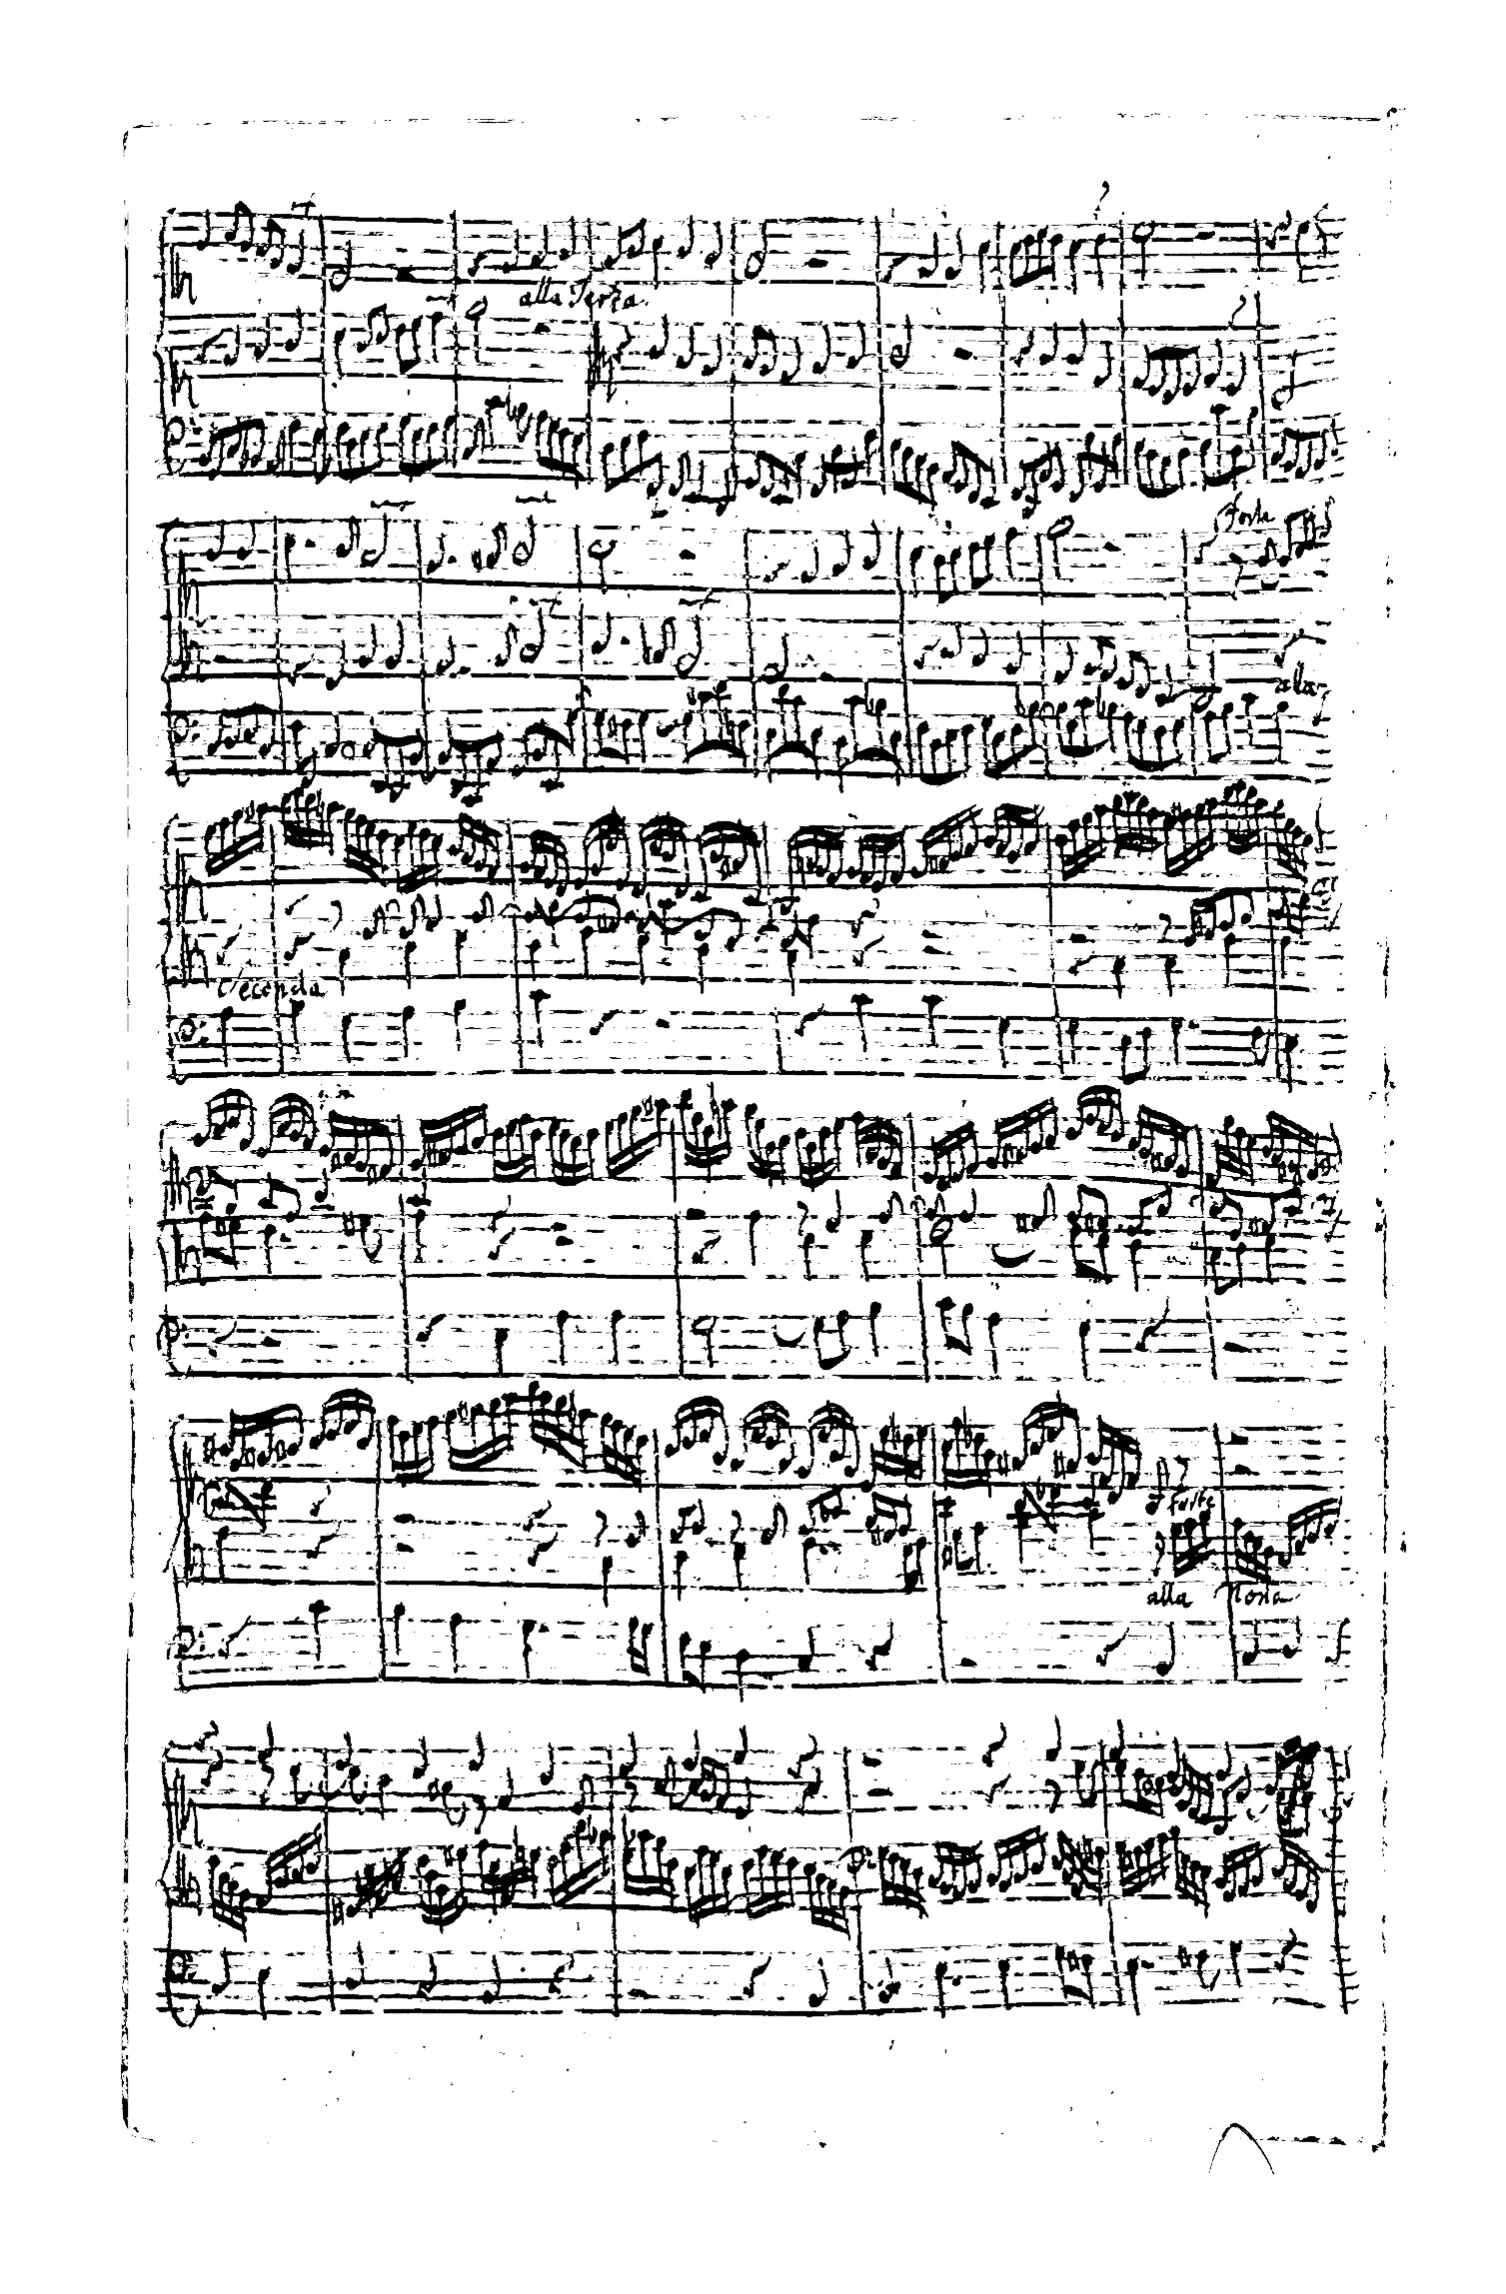 alla Terza.
forte
alla
Seconda
forte
alla Nona